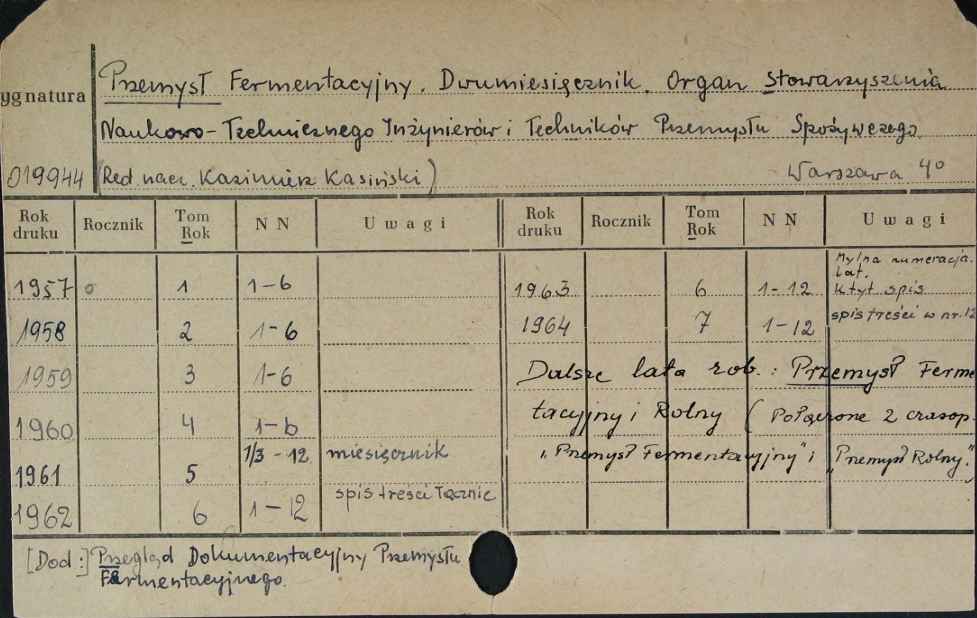 Przemysł Fermentacyjny. Dwumiesięcznik. Organ Stowarzyszenia
ygnatura
Naukowo-Technicznego Inżynierów i Techników Przemysłu Spożywczego.
019944 (Red. nacz. Kazimierz Kasiński) Warszawa 4o
Rok druku Rocznik Tom Rok NN Uwagi Rok druku Rocznik Tom Rok NN Uwagi
1957 o 1 1-6 1963 6 1-12 Mylna numeracja lat. ktyt spis
1958 2 1-6 1964 7 1-12 spis treści w nr. 12
1959 3 1-6 Dalsze lata zob.: Przemysł Ferme
1960 4 1-6 tacyjny i Rolny (Połączone 2 czasop.
1961 5 1/3-12 miesięcznik "Przemysł Fermentacyjny" i "Przemysł Rolny".)
1962 6 1-12 spis treści łącznie
[Dod:] Przegląd Dokumentacyjny Przemysłu
Fermentacyjnego.